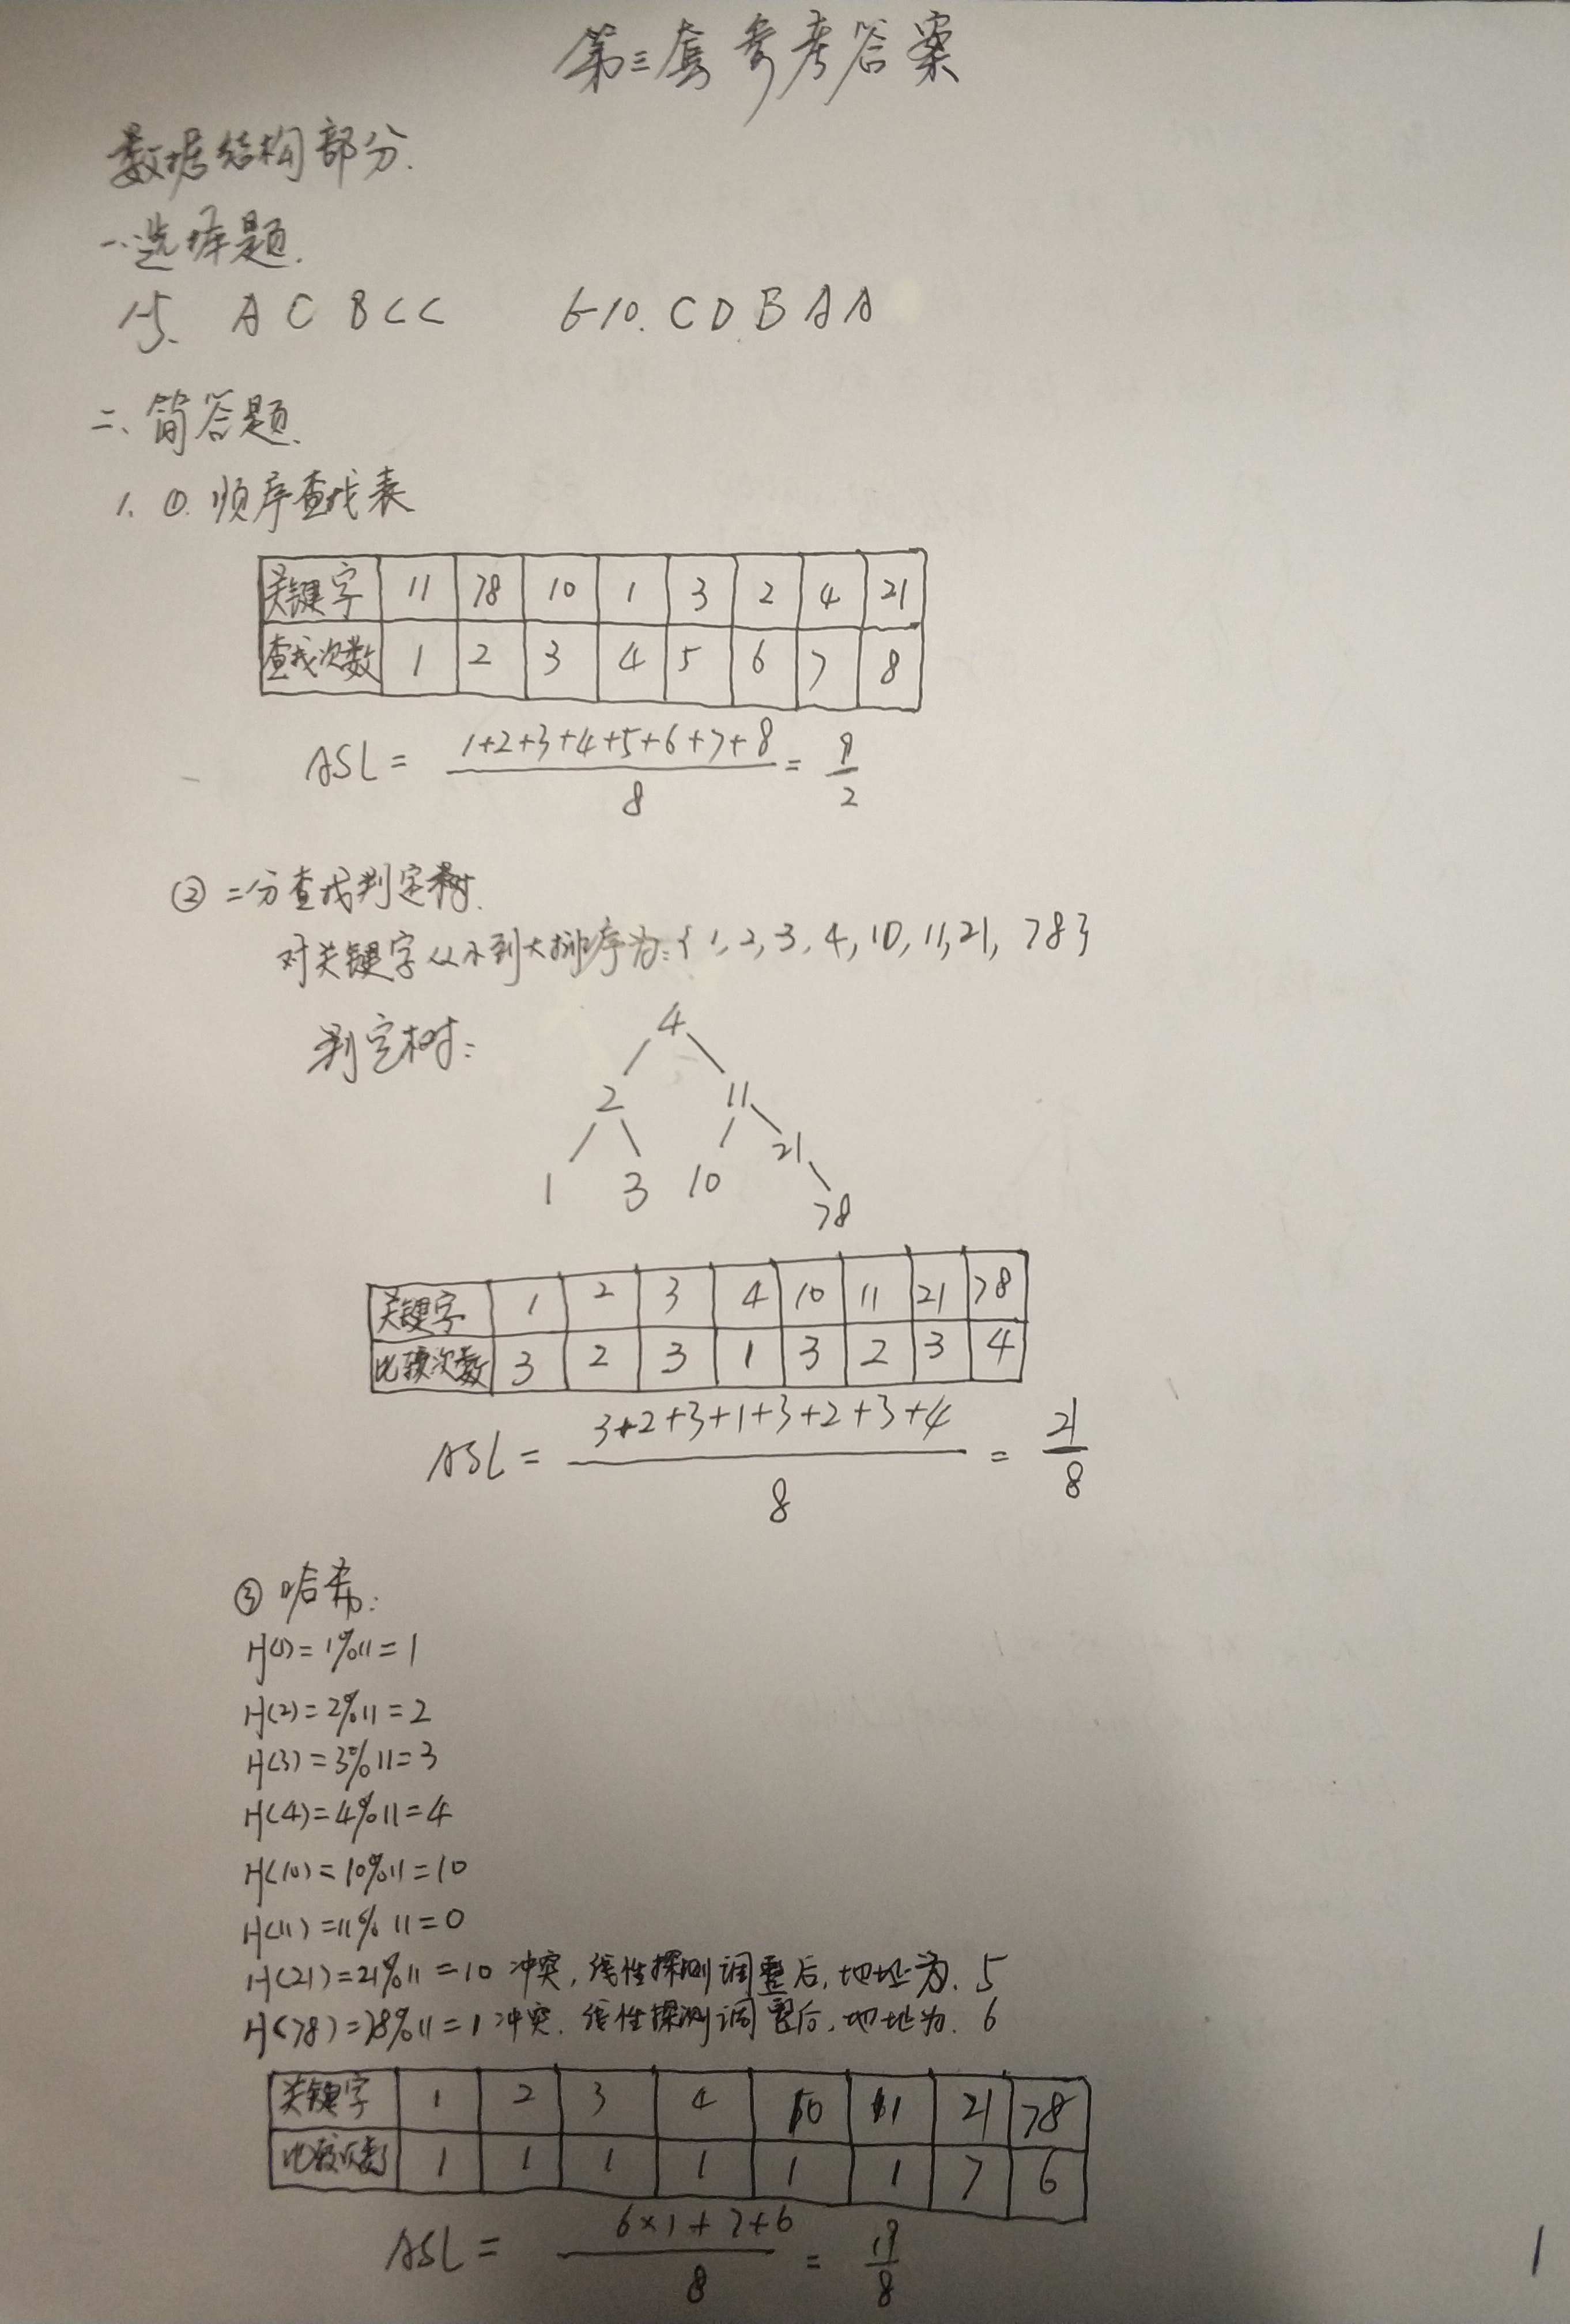 第三套参考答案
数据结构部分.
一.选择题.
1-5. A C B C C 6-10. C D B A A
二、简答题.
1. ①. 顺序查找表
关键字 11 78 10 1 3 2 4 21
查找次数 1 2 3 4 5 6 7 8
ASL = (1+2+3+4+5+6+7+8)/8 = 9/2
② 二分查找判定树.
对关键字从小到大排序为:{1,2,3,4,10,11,21,78}
判定树:
4
2 11
21
1 3 10
78
关键字 1 2 3 4 10 11 21 78
比较次数 3 2 3 1 3 2 3 4
ASL = (3+2+3+1+3+2+3+4)/8 = 21/8
③ 哈希:
H(1)=1%11=1
H(2)=2%11=2
H(3)=3%11=3
H(4)=4%11=4
H(10)=10%11=10
H(11)=11%11=0
H(21)=21%11=10 冲突,线性探测调整后,地址为.5
H(78)=78%11=1 冲突.线性探测调整后,地址为.6
关键字 1 2 3 4 10 11 21 78
比较次数 1 1 1 1 1 1 7 6
ASL = (6×1+7+6)/8 = 19/8
1